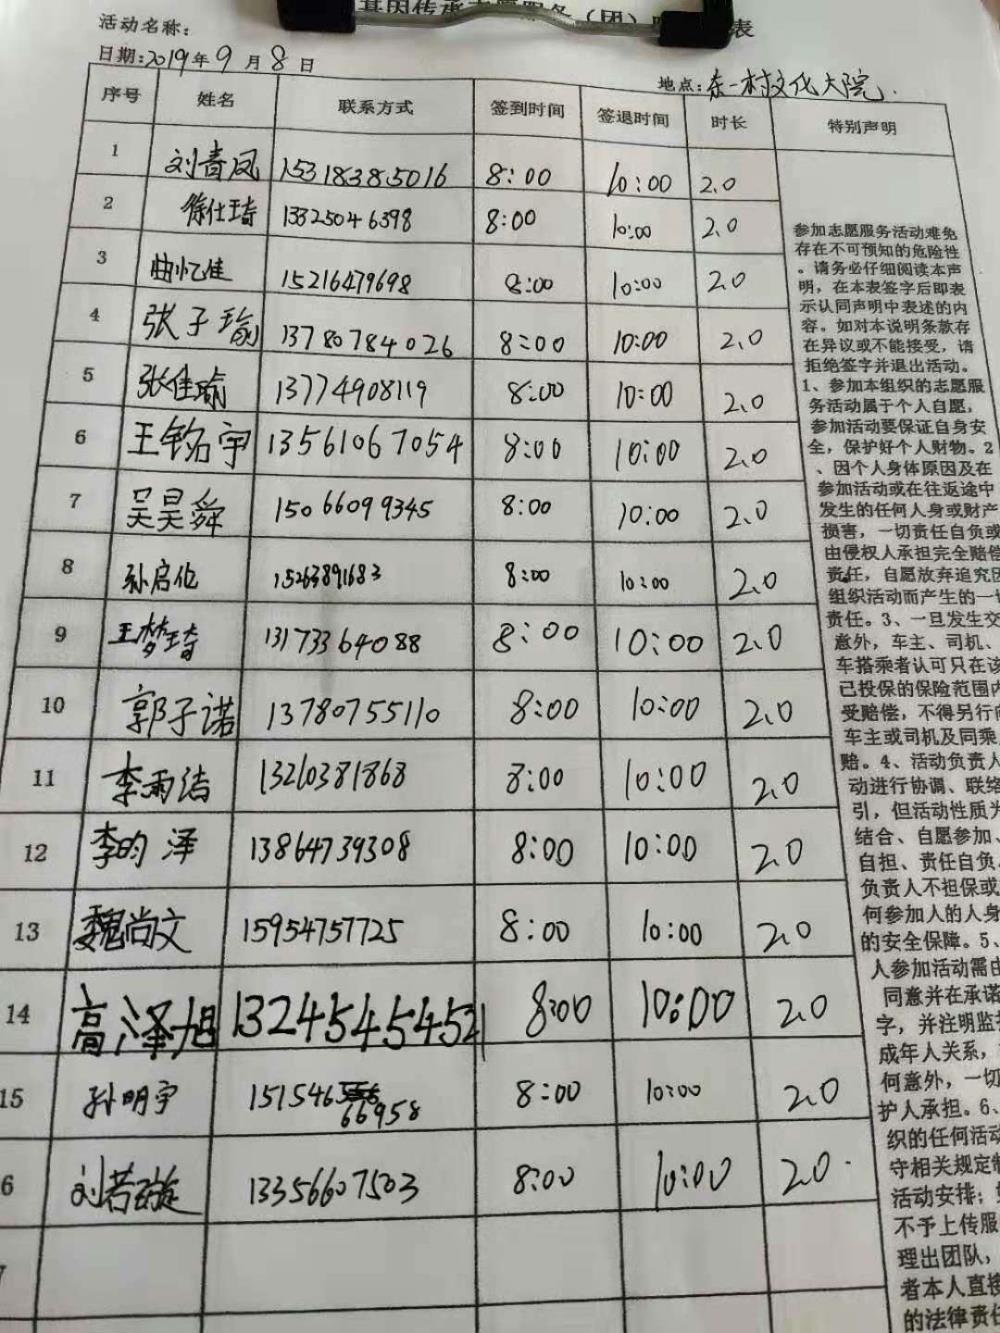 基因传承志愿服务（团）队 表
活动名称：
日期：2019年9月8日
地点：东一村文化大院
序号 姓名 联系方式 签到时间 签退时间 时长 特别声明
1 刘春凤 15318385016 8:00 10:00 2.0
2 徐仕琦 13325046398 8:00 10:00 2.0
3 曲忆佳 15216479698 8:00 10:00 2.0
4 张子瑜 13780784026 8:00 10:00 2.0
5 张佳瑜 13774908119 8:00 10:00 2.0
6 王铭宇 13561067054 8:00 10:00 2.0
7 吴昊舜 15066099345 8:00 10:00 2.0
8 孙启伦 15263891683 8:00 10:00 2.0
9 王梦琦 13173364088 8:00 10:00 2.0
10 郭子诺 13780755110 8:00 10:00 2.0
11 李雨洁 13210381868 8:00 10:00 2.0
12 李昀泽 13864739308 8:00 10:00 2.0
13 魏尚文 15954757725 8:00 10:00 2.0
14 高泽旭 13245454521 8:00 10:00 2.0
15 孙明宇 15154666958 8:00 10:00 2.0
6 刘若璇 13356607503 8:00 10:00 2.0
参加志愿服务活动难免
存在不可预知的危险性
。请务必仔细阅读本声
明，在本表签字后即表
示认同声明中表述的内
容。如对本说明条款存
在异议或不能接受，请
拒绝签字并退出活动。
1、参加本组织的志愿服
务活动属于个人自愿，
参加活动要保证自身安
全，保护好个人财物。2
、因个人身体原因及在
参加活动或在往返途中
发生的任何人身或财产
损害，一切责任自负或
由侵权人承担完全赔偿
责任，自愿放弃追究因
组织活动而产生的一切
责任。3、一旦发生交
意外，车主、司机、
车搭乘者认可只在该
己投保的保险范围内
受赔偿，不得另行向
车主或司机及同乘
赔。4、活动负责人
动进行协调、联络
引，但活动性质为
结合、自愿参加、
自担、责任自负
负责人不担保或
何参加人的人身
的安全保障。5、
人参加活动需由
同意并在承诺
字，并注明监护
成年人关系，
何意外，一切
护人承担。6、
织的任何活动
守相关规定制
活动安排；
不予上传服
理出团队，
者本人直接
的法律责任